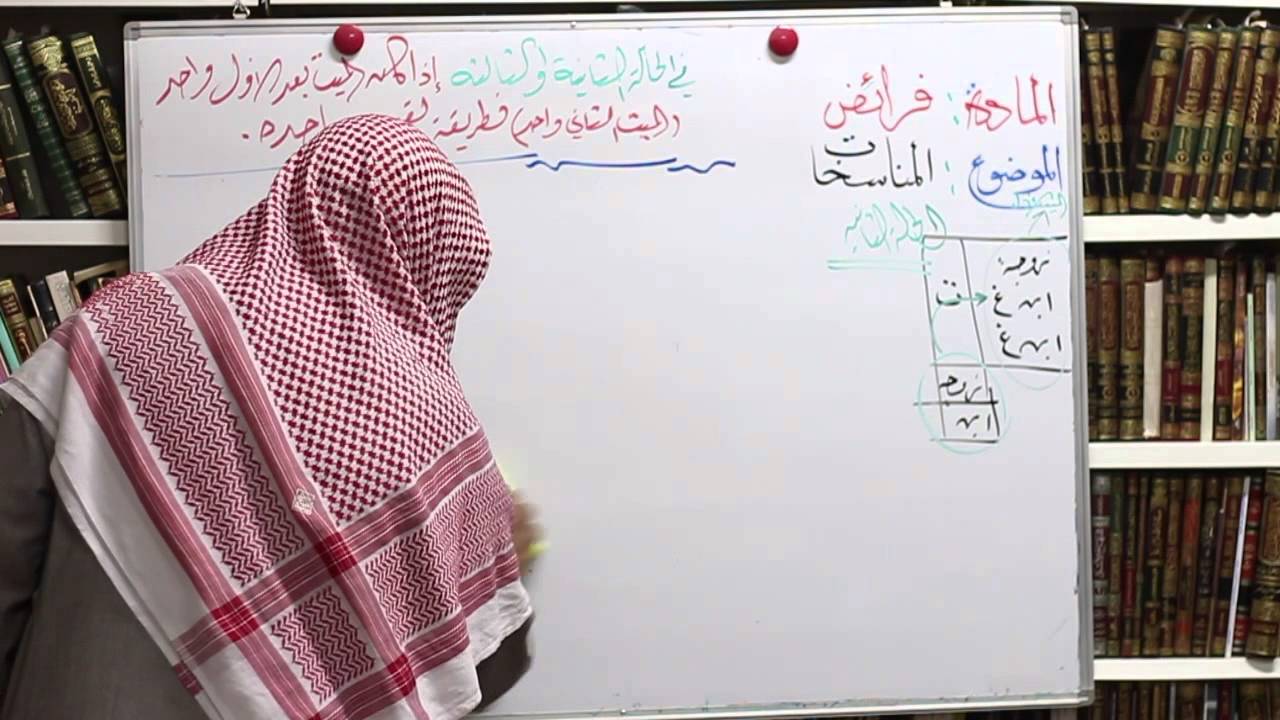 المادة : فرائض
الموضوع : المناسخات
في الحالة الثانية والثالثة إذا كان الميت بعد الأول واحد
(الميت الثاني واحد) فطريقة واحدة .
الحالة الثانية
زوجة
ابن غ ت
ابن غ
زوجة
ابن